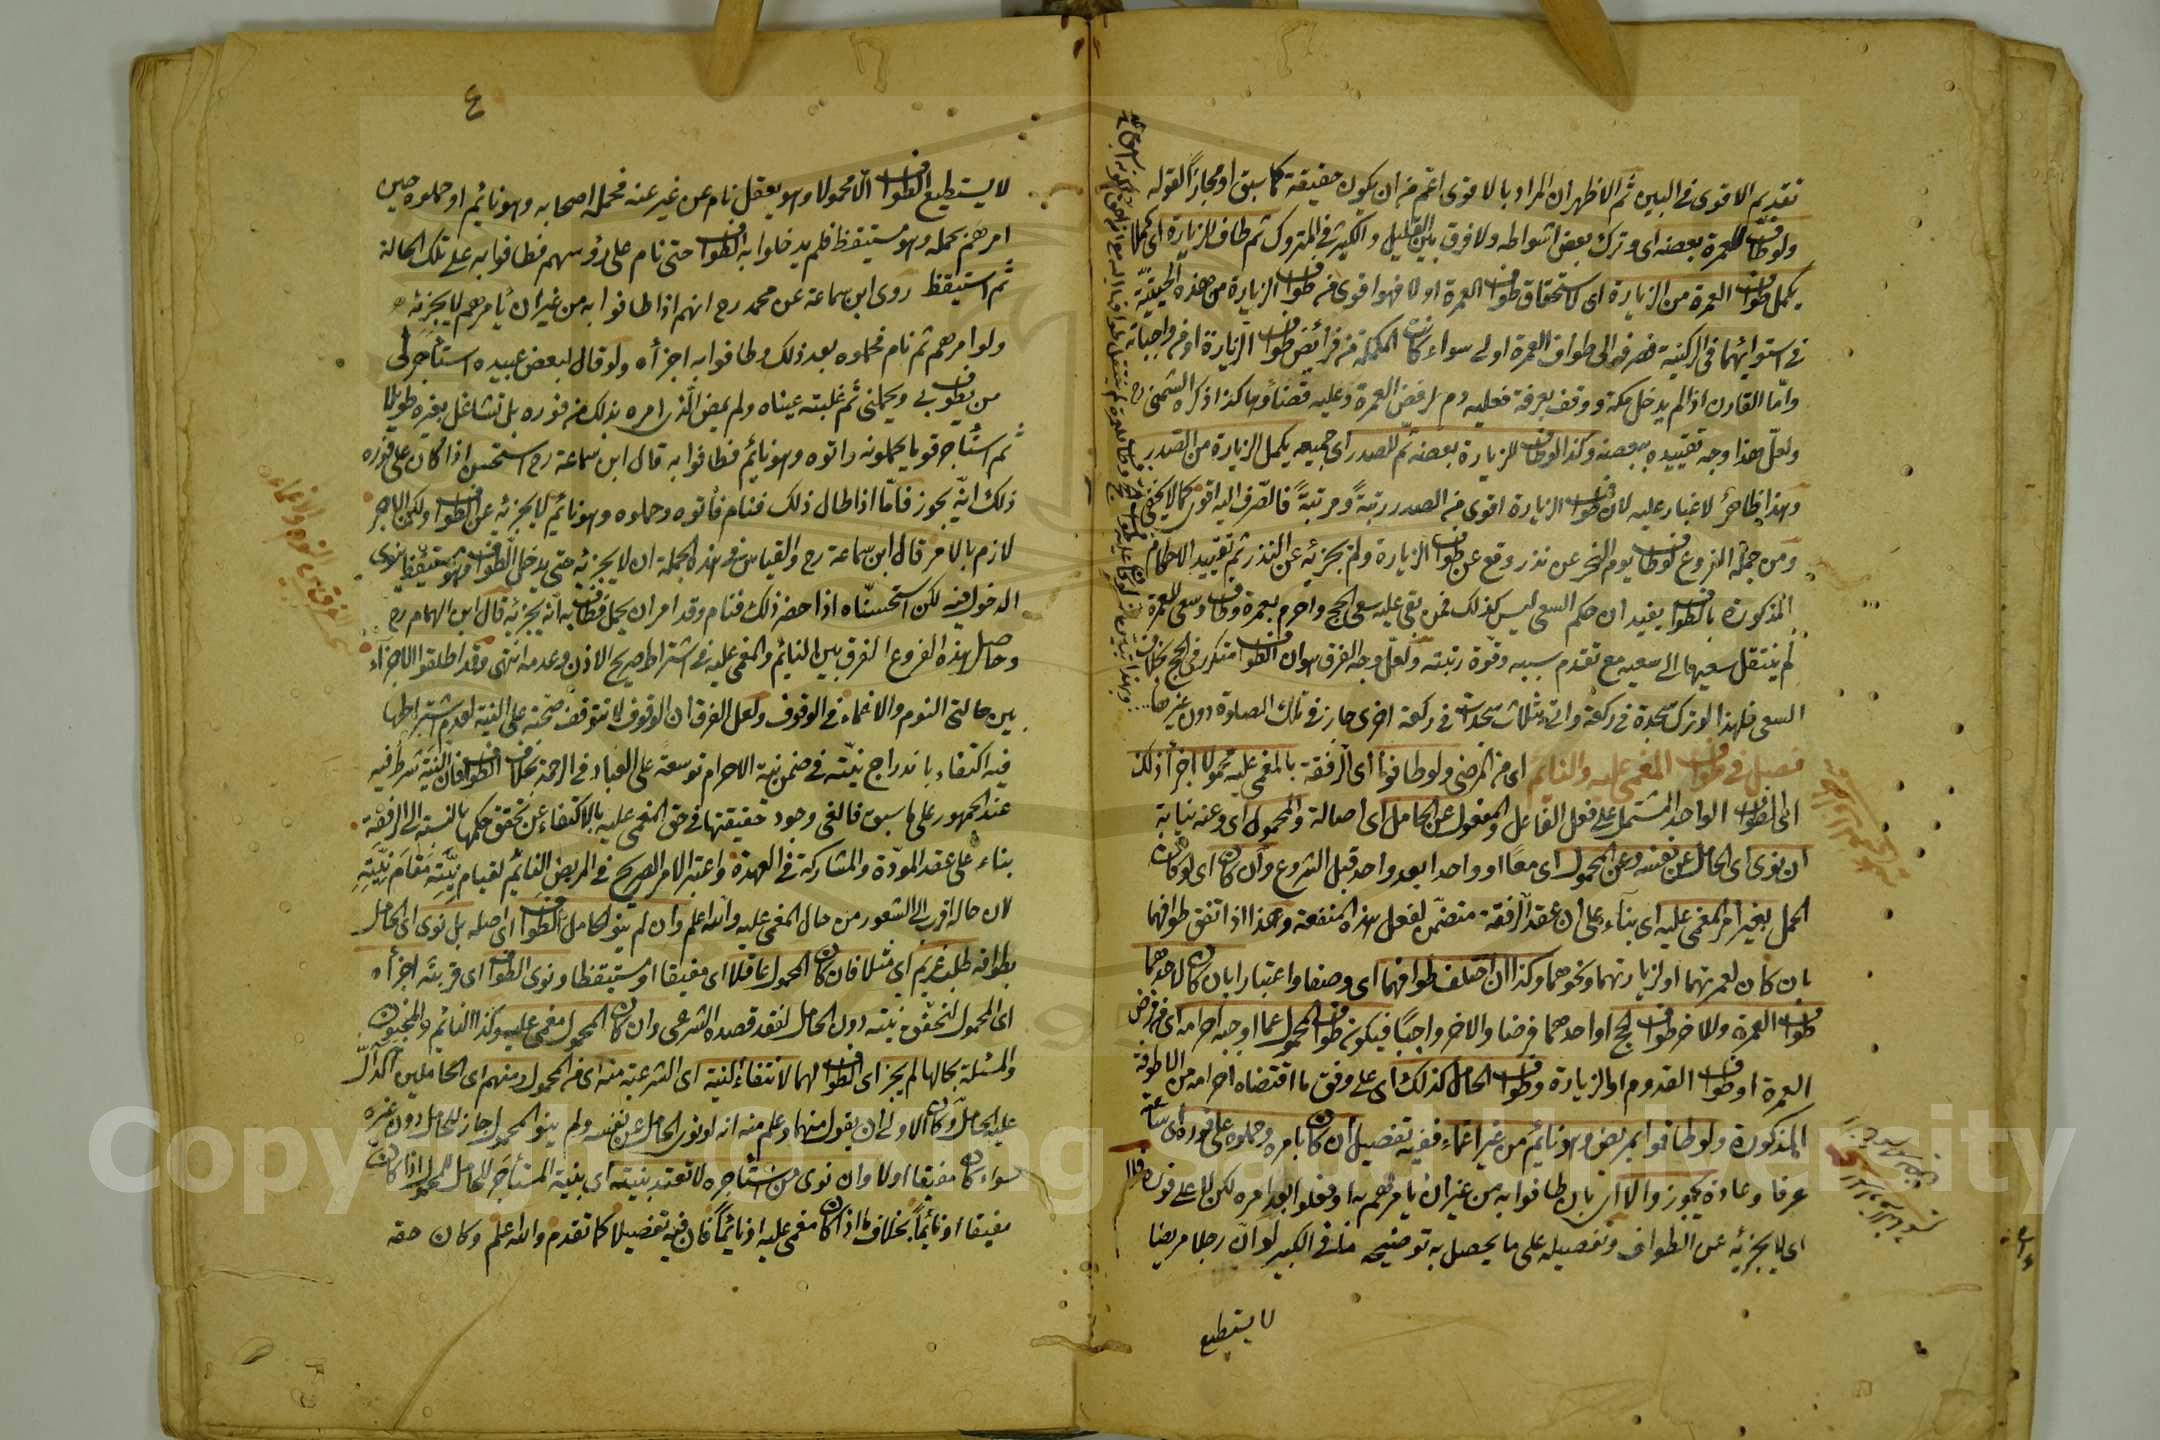 تقديم الاقوى في البين ثم الاظهران المراد بالاقوى اعم من ان يكون حقيقة كما سبق او مجازا لقوله
ولو طاف للعمرة بعضه اي وترك بعض اشواطه ولا فرق بين القليل والكثير في المتروك ثم طاف للزيارة اي كملا
يكمل طواف العمرة من الزيارة اي لاستحقاق طواف العمرة اولا فهو اقوى من طواف الزيارة من هذه الحيثية
في استوائهما في الركنية فصرفه الى طواف العمرة اولى سواء كانت المكملة من فرائض طواف الزيارة او من واجباته
واما القارن اذا لم يدخل مكة ووقف بعرفة فعليه دم لرفض العمرة وعليه قضاؤها كذا ذكره الشمني رح
ولعل هذا وجه تقييده ببعضه وكذا لو طاف للزيارة بعضه ثم للصدر اي جميعه يكمل الزيارة من الصدر
وهذا ظاهر لا غبار عليه لان طواف الزيارة اقوى من الصدر رتبة ومرتبة فالصرف اليه اقوى كما لا يخفى
ومن جملة الفروع لو طاف يوم النحر عن نذر وقع عن طواف الزيارة ولم يجزئه عن النذر ثم تقييد الاحكام
المذكورة بالطواف يفيد ان حكم السعي ليس كذلك فمن بقي عليه سعي الحج واحرم بعمرة وطاف وسعى للعمرة
لم ينتقل سعيها الى سعيه مع تقدم سببه وقوة رتبته ولعل وجه الفرق هو ان الطواف متكرر في الحج بخلاف
السعي فلهذا لو ترك سجدة في ركعة واتى بثلاث سجدات في ركعة اخرى جاز في تلك الصلوة دون غيرها
فصل في طواف المغمى عليه والنائم اي من المرضى ولو طافوا اي الرفقة بالمغمى عليه محمولا اجزأ ذلك
اي الطواف الواحد المشتمل على فعل الفاعل والمفعول عن الحامل اي اصالة والمحمول اي وعنه نيابة
ان نوى اي الحامل عن نفسه وعن المحمول اي معا او واحدا بعد واحد قبل الشروع وان كان اي لو كان
الحمل بغير امر المغمى عليه اي بناء على ان عقد الرفقة متضمن لفعل هذه المنفعة وهذا اذا اتفق طوافهما
بان كان لعمرتهما او لزيارتهما ونحوهما وكذا ان اختلف طوافهما اي وصفا واعتبارا بان كان لاحدهما
طواف العمرة وللاخر طواف الحج او احدهما فرضا والاخر واجبا فيكون طواف المحمول عما اوجبه احرامه اي من فرض
العمرة او طواف القدوم او الزيارة وطواف الحامل كذلك اي على وفق ما اقتضاه احرامه من الاطوفة
المذكورة ولو طافوا بمريض وهو نائم من غير اغماء ففيه تفصيل ان كان بامره وحملوه على فوره اي ساعته
عرفا وعادة يجوز والا اي بان طافوا به من غير ان يأمرهم به او فعلوا بعد امره لكن لا على فوره فلا
اي لا يجزئه عن الطواف وتفصيله على ما يحصل به توضيحه ما في الكبير لو ان رجلا مريضا
لا يستطيع
٤
لا يستطيع الطواف الا محمولا وهو يعقل نام عن غير عته فحمله اصحابه وهو نائم او حملوه حين
امرهم بحمله وهو مستيقظ فلم يدخلوا به الطواف حتى نام على رؤسهم فطافوا به على تلك الحالة
ثم استيقظ روى ابن سماعة عن محمد رح انهم اذا طافوا به من غير ان يأمرهم لا يجزئه
ولو امرهم ثم نام فحملوه بعد ذلك وطافوا به اجزأه ولو قال لبعض عبيده استأجر لي
من يطوف بي ويحملني ثم غلبته عيناه ولم يمض الذي امره بذلك من فوره بل تشاغل بغيره طويلا
ثم استأجر قوما يحملونه واتوه وهو نائم فطافوا به قال ابن سماعة رح استحسن اذا كان على فوره
ذلك انه يجوز فاما اذا طال ذلك فنام فأتوه وحملوه وهو نائم لا يجزئه عن الطواف ولكن الاجر
لازم بالامر قال ابن سماعة رح والقياس في هذه الجملة ان لا يجزئه حتى يدخل الطواف وهو مستيقظ ينوي
الدخول فيه لكن استحسناه اذا حضر ذلك فنام وقد امر ان يحمل فطاف به انه يجزئه قال ابن الهمام رح
وحاصل هذه الفروع الفرق بين النائم والمغمى عليه في اشتراط صريح الاذن وعدمه انتهى وقد اطلقوا الاجزاء
بين حالتي النوم والاغماء في الوقوف ولعل الفرق ان الوقوف لا تتوقف صحته على النية لعدم اشتراطها
فيه اكتفاء باندراج نيته في ضمن نية الاحرام توسعة على العباد في الرحمة بخلاف الطواف فان النية شرط فيه
عند الجمهور على ما سبق فالغي وجود حقيقتها في حق المغمى عليه بالاكتفاء عن تحقق حكمها بالنسبة الى الرفقة
بناء على عقد المودة والمشاركة في العهدة واعتبر الامر الصريح في المريض النائم لقيام نيته مقام نيته
لان حاله اقرب الى الشعور من حال المغمى عليه والله اعلم وان لم ينو الحامل الطواف اي اصله بل نوى اي الحامل
بطوافه طلب غريم اي مثلا فان كان المحمول عاقلا اي مفيقا او مستيقظا ونوى الطواف اي قربته اجزأه
اي المحمول لتحقق نيته دون الحامل لفقد قصده الشرعي وان كان المحمول مغمى عليه وكذا النائم والمجنون
والمسئلة بحالها لم يجز اي الطواف لهما لانتفاء النية اي الشرعية منه اي من المحمول ومنهم اي الحاملين الدال
عليه الحامل وكان الاولى ان يقول منهما وعلم منه انه لو نوى الحامل عن نفسه ولم ينو المحمول جاز للحامل دون غيره
سواء كان مفيقا او لا وان نوى من استأجره لا تعتبر نيته اي بنية المستأجر للحامل للمحمول اذا كان
مفيقا او نائما بخلاف ما اذا كان مغمى عليه او نائما فان فيه تفصيلا كما تقدم والله اعلم وكان حقه
الفرق بين النوم والاغماء
Copyright © King Saud University